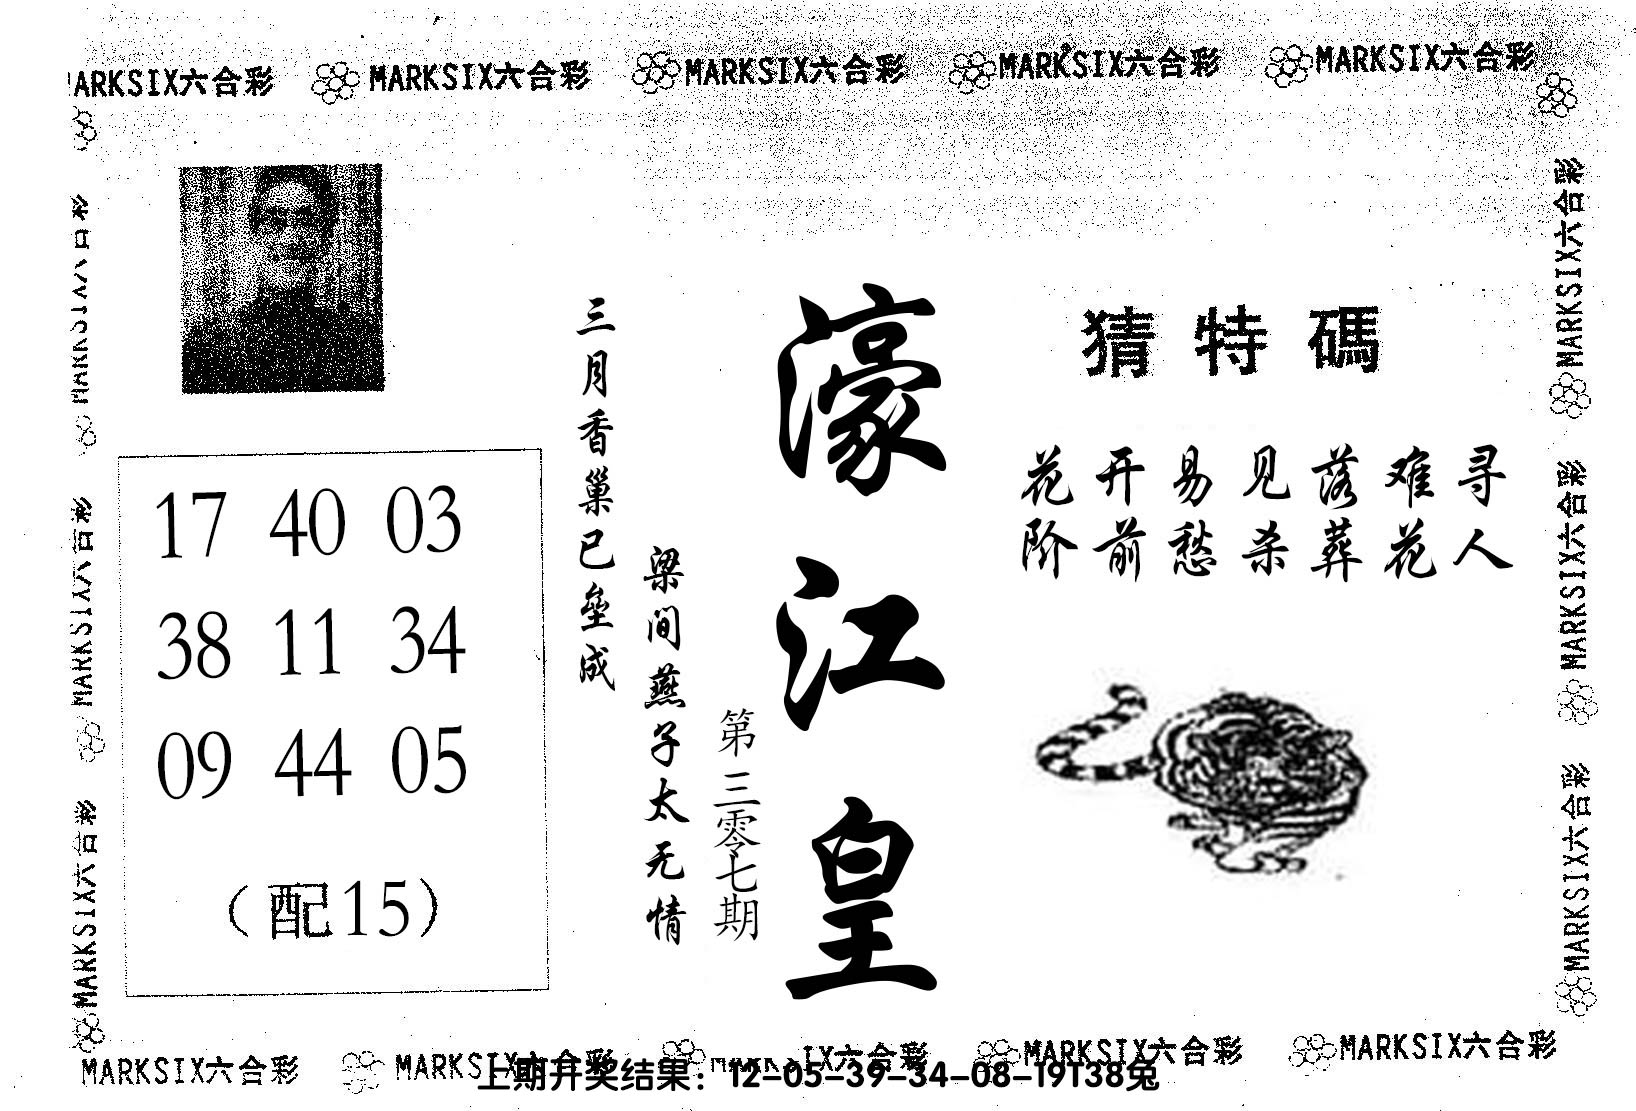 MARKSIX六合彩 MARKSIX六合彩 MARKSIX六合彩 MARKSIX六合彩 MARKSIX六合彩
猜特碼
花开易见落难寻
阶前愁杀葬花人
濠江皇
第三零七期
三月香巢已垒成
梁间燕子太无情
17 40 03
38 11 34
09 44 05
（配15）
MARKSIX六合彩
MARKSIX六合彩
MARKSIX六合彩
MARKSIX六合彩
MARKSIX六合彩
MARKSIX六合彩
MARKSIX六合彩 MARKSIX六合彩 MARKSIX六合彩 MARKSIX六合彩
上期开奖结果：12-05-39-34-08-19T38兔